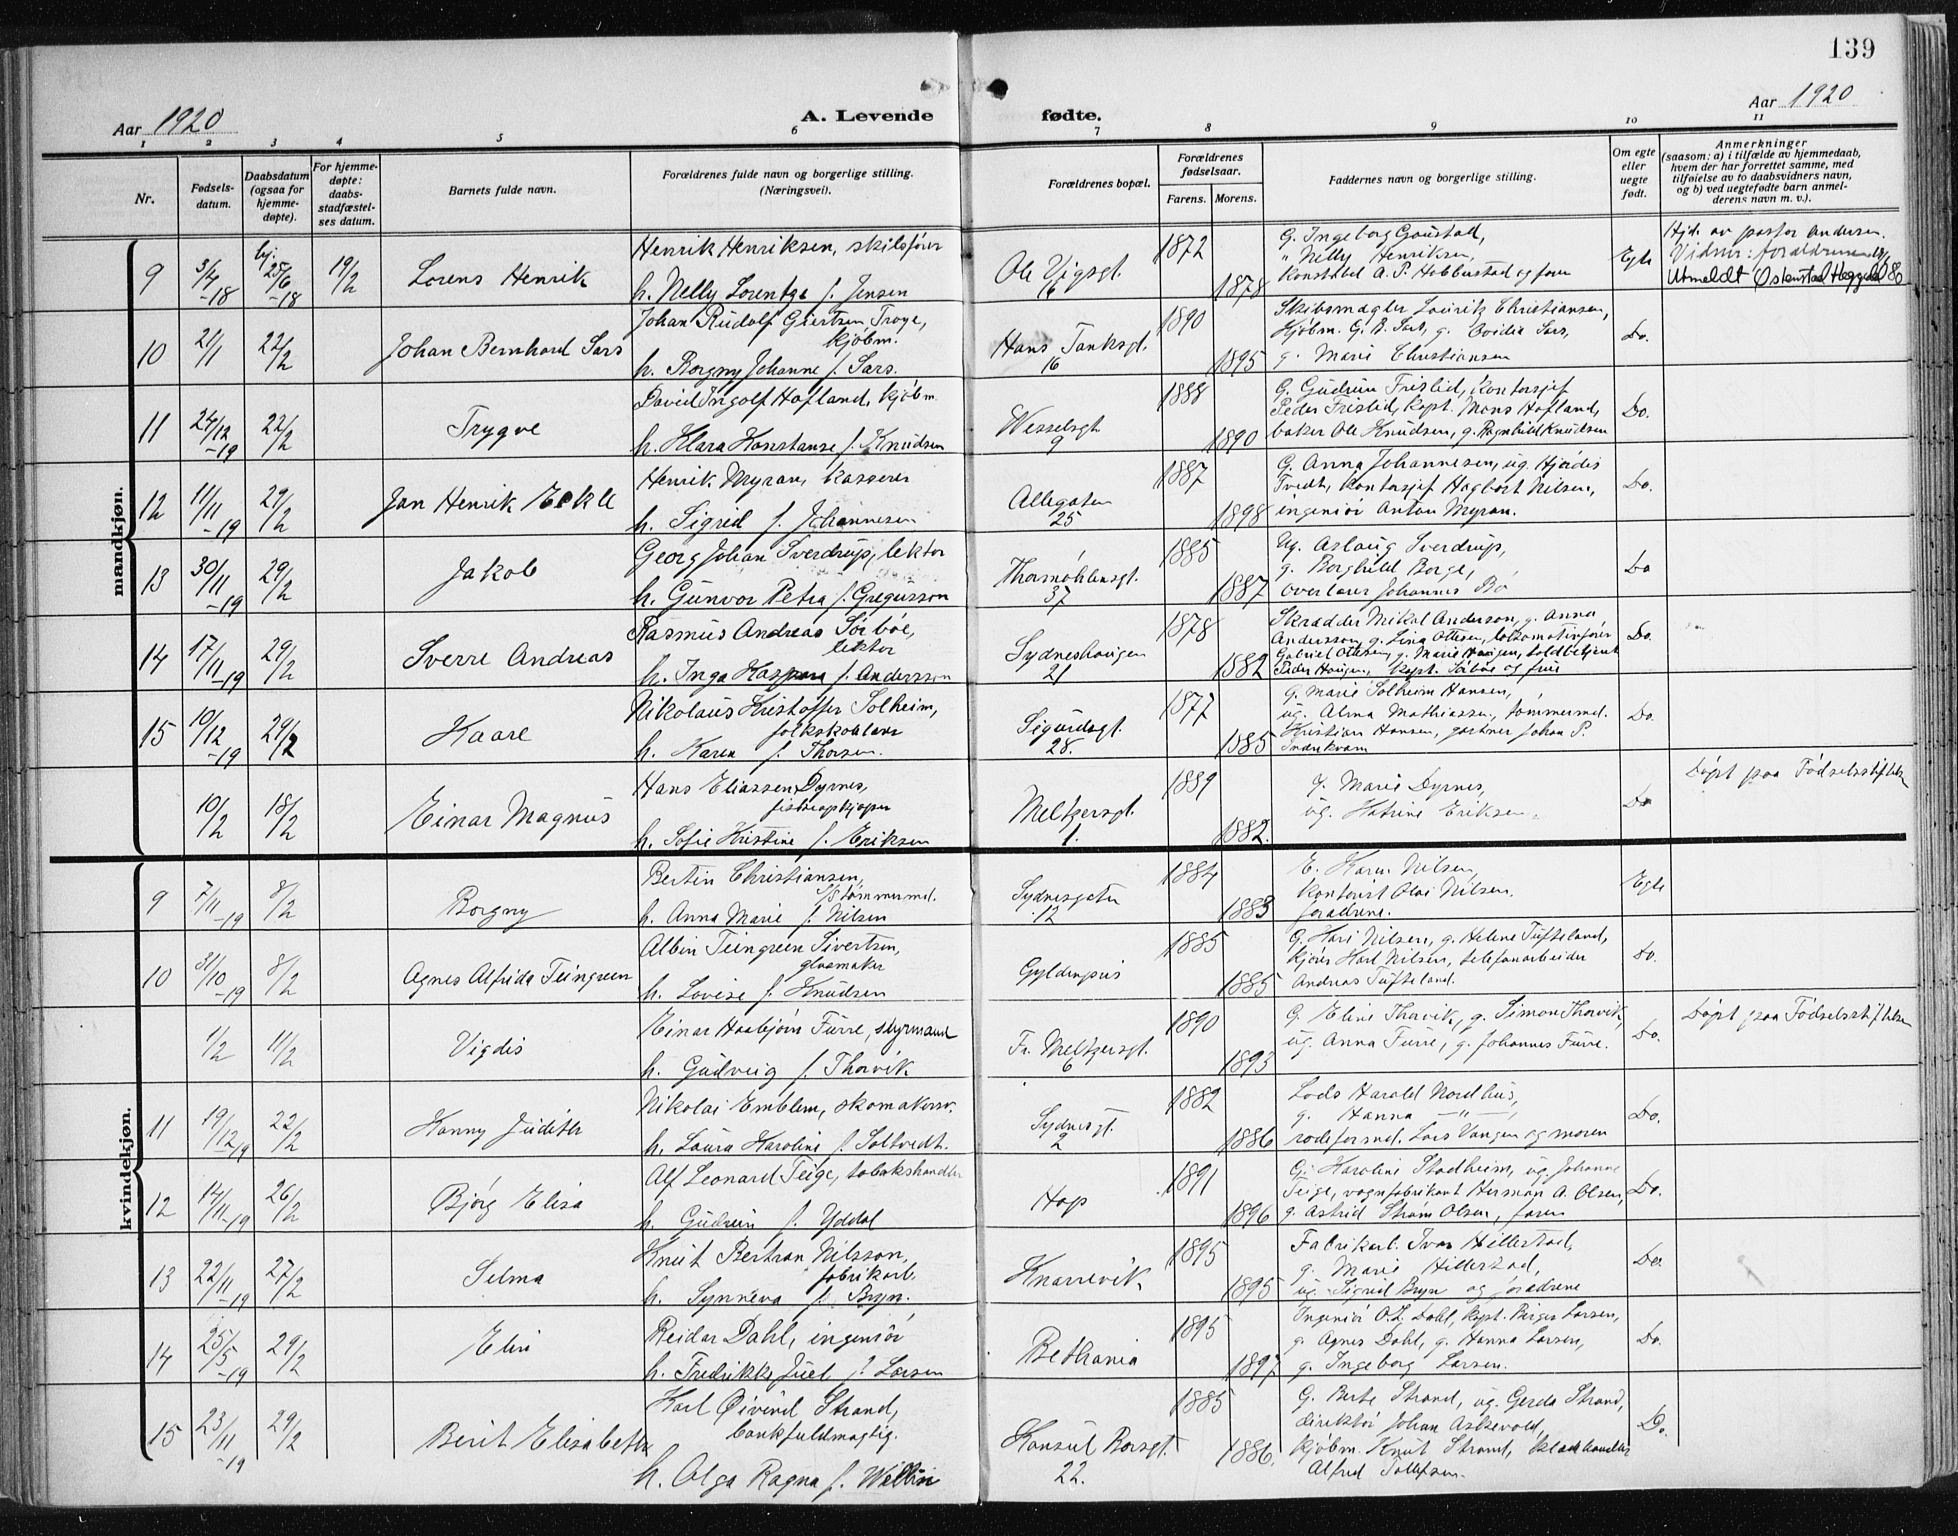 139
Aar 1920
A. Levende fødte.
Aar 1920
1 2 3 4 5 6 7 8 9 10 11
Nr.
Fødsels-
datum.
Daabsdatum
(ogsaa for
hjemme-
døpte).
For hjemme-
døpte:
daabs-
stadfæstel-
ses datum.
Barnets fulde navn.
Forældrenes fulde navn og borgerlige stilling.
(Næringsvei).
Forældrenes bopæl.
Forældrenes
fødselsaar.
Farens. Morens.
Faddernes navn og borgerlige stilling.
Om egte
eller
uegte
født.
Anmerkninger
(saasom: a) i tilfælde av hjemmedaab,
hvem der har forrettet samme, med
tilføielse av to daabsvidners navn,
og b) ved uegtefødte barn anmel-
derens navn m. v.).
mandkjøn.
9 3/4 -18 hj. 25/6 -18 19/2 Lorens Henrik
Henrik Henriksen, skibsfører
h. Nelly Lorentze f. Jensen
Ole Vigsgt. 16
1872 1878
G. Ingeborg Gaustad,
" Nelly Henriksen,
konstabel A. P. Hobbestad og faren
Egte
Hjd. av pastor Andersen.
Vidner: forældrene
Utmeldt
10 21/1 22/2 Johan Bernhard Sars
Johan Rudolf Giertsen Troye,
kjøbm.
h. Borgny Johanne f. Sars.
Hans Tanksgt. 16
1890 1895
Skibsmægler Lourik Christiansen,
Kjøbm. G. B. Sars, g. Ovidia Sars,
g. Marie Christiansen
Do.
11 24/12 -19 22/2 Trygve
David Ingolf Hafland, kjøbm.
h. Klara Konstanse f. Knudsen
Wesselsgt. 9
1888 1890
G. Gudrun Fristid, kontorsjef
Peder Fristid, kapt. Mons Hafland,
baker Ole Knudsen, g. Ragnhild Knudsen
Do.
12 11/11 -19 29/2 Jan Henrik
Henrik Myran, kasserer
h. Sigrid f. Johannesen
Allegaten 25
1887 1898
G. Anna Johannesen, ug. Hjørdis
Tvedt, kontorsjef Hagbart Nilsen,
ingeniør Anton Myran.
Do.
13 30/11 -19 29/2 Jakob
Georg Johan Sverdrup, lektor
h. Gunvor Petra f. Gregusson
Thormøhlensgt. 37
1885 1887
Ug. Aslaug Sverdrup,
g. Borghild Borge,
overlærer Johannes Bø
Do
14 17/11 -19 29/2 Sverre Andreas
Rasmus Andreas Sørbøe,
lektor
h. Inga Kaspara f. Andersson
Sydneshaugen 21
1878 1882
Skrædder Mikal Anderson, g. Anna
Andersson, g. Lina Ottesen, lokomotivfører
Gabriel Ottesen, g. Marie Haugen, toldbetjent
Peder Haugen, kapt. Sørbøe og frue
Do.
15 10/12 -19 29/2 Kaare
Nikolaus Kristoffer Solheim,
folkskolelærer
h. Karen f. Thorsen.
Sigurdsgt. 28.
1877 1885
g. Marie Solheim Hansen,
ug. Alma Mathiassen, tømmermd.
Kristian Hansen, gartner Johan P.
Indrekvam
Do.
10/2 18/2 Einar Magnus
Hans Eliassen Dyrnes,
fiskeopkjøper
h. Sofie Kristine f. Eriksen
Meltzersgt. 1.
1889 1882.
g. Marie Dyrnes,
ug. Katrine Eriksen.
Do
Døpt paa Fødselsstiftelsen
kvindekjøn.
9 7/11 -19 8/2 Borgny
Bertin Christiansen,
tømmermd.
h. Anna Marie f. Nilsen
Sydnesgaten 12
1884 1883
E. Karen Nilsen,
kontorist Olai Nilsen.
forældrene.
Egte
10 31/10 -19 8/2 Agnes Alfrida Teingreen
Albin Teingreen Sivertsen,
glasmaker
h. Lovise f. Knudsen
Gyldenpris
1885 1885
G. Kari Nilsen, g. Helene Tufteland,
kjører Karl Nilsen, telefonarbeider
Andreas Tufteland.
Do.
1/2 11/2 Vigdis
Einar Haabjørn Furre, styrmand
h. Gudveig f. Thorvik
Fr. Meltzersgt. 6
1890 1893
G. Eline Thorvik, g. Simon Thorvik,
ug. Anna Furre, g. Johannes Furre.
Do.
Døpt paa Fødselsstiftelsen
11 19/12 -19 22/2 Hanny Judith
Nikolai Emblem, skomakersv.
h. Laura Karoline f. Soltvedt.
Sydnesgt. 2
1882 1886
Lods Harald Nordhus,
g. Hanna — " —,
rodeformd. Lars Vangen og moren
Do.
12 14/11 -19 26/2 Bjørg Elisa
Alf Leonard Teige, tobakshandler
h. Gudrun f. Yddal
Hop
1891 1896
G. Karoline Stadheim, ug. Johanne
Teige, vognfabrikant Herman A. Olsen,
g. Astrid Strøm Olsen, faren
Do.
13 22/11 -19 27/2 Selma
Knut Bertran Nilsson,
fabrikarb.
h. Synneva f. Bryn.
Knarrevik
1895 1895
Fabrikarb. Ivar Hillestad,
g. Marie Hillestad,
ug. Sigrid Bryn og forældrene
Do.
14 25/5 -19 29/2 Elin
Reidar Dahl, ingeniør
h. Fredrikke Juel f. Larsen
Bethania
1895 1897
Ingeniør O. L. Dahl, kapt. Birger Larsen,
g. Agnes Dahl, g. Hanna Larsen,
g. Ingeborg Larsen.
Do.
15 23/11 -19 29/2 Berit Elisabeth
Karl Øivind Strand,
bankfuldmægtig.
h. Olga Ragna f. Wallin
Konsul Børsgt. 22.
1885 1886.
G. Berte Strand, ug. Gerda Strand,
direktør Johan Askevold,
kjøbm. Knut Strand, kladehandler
Alfred Tollefsen.
Do.